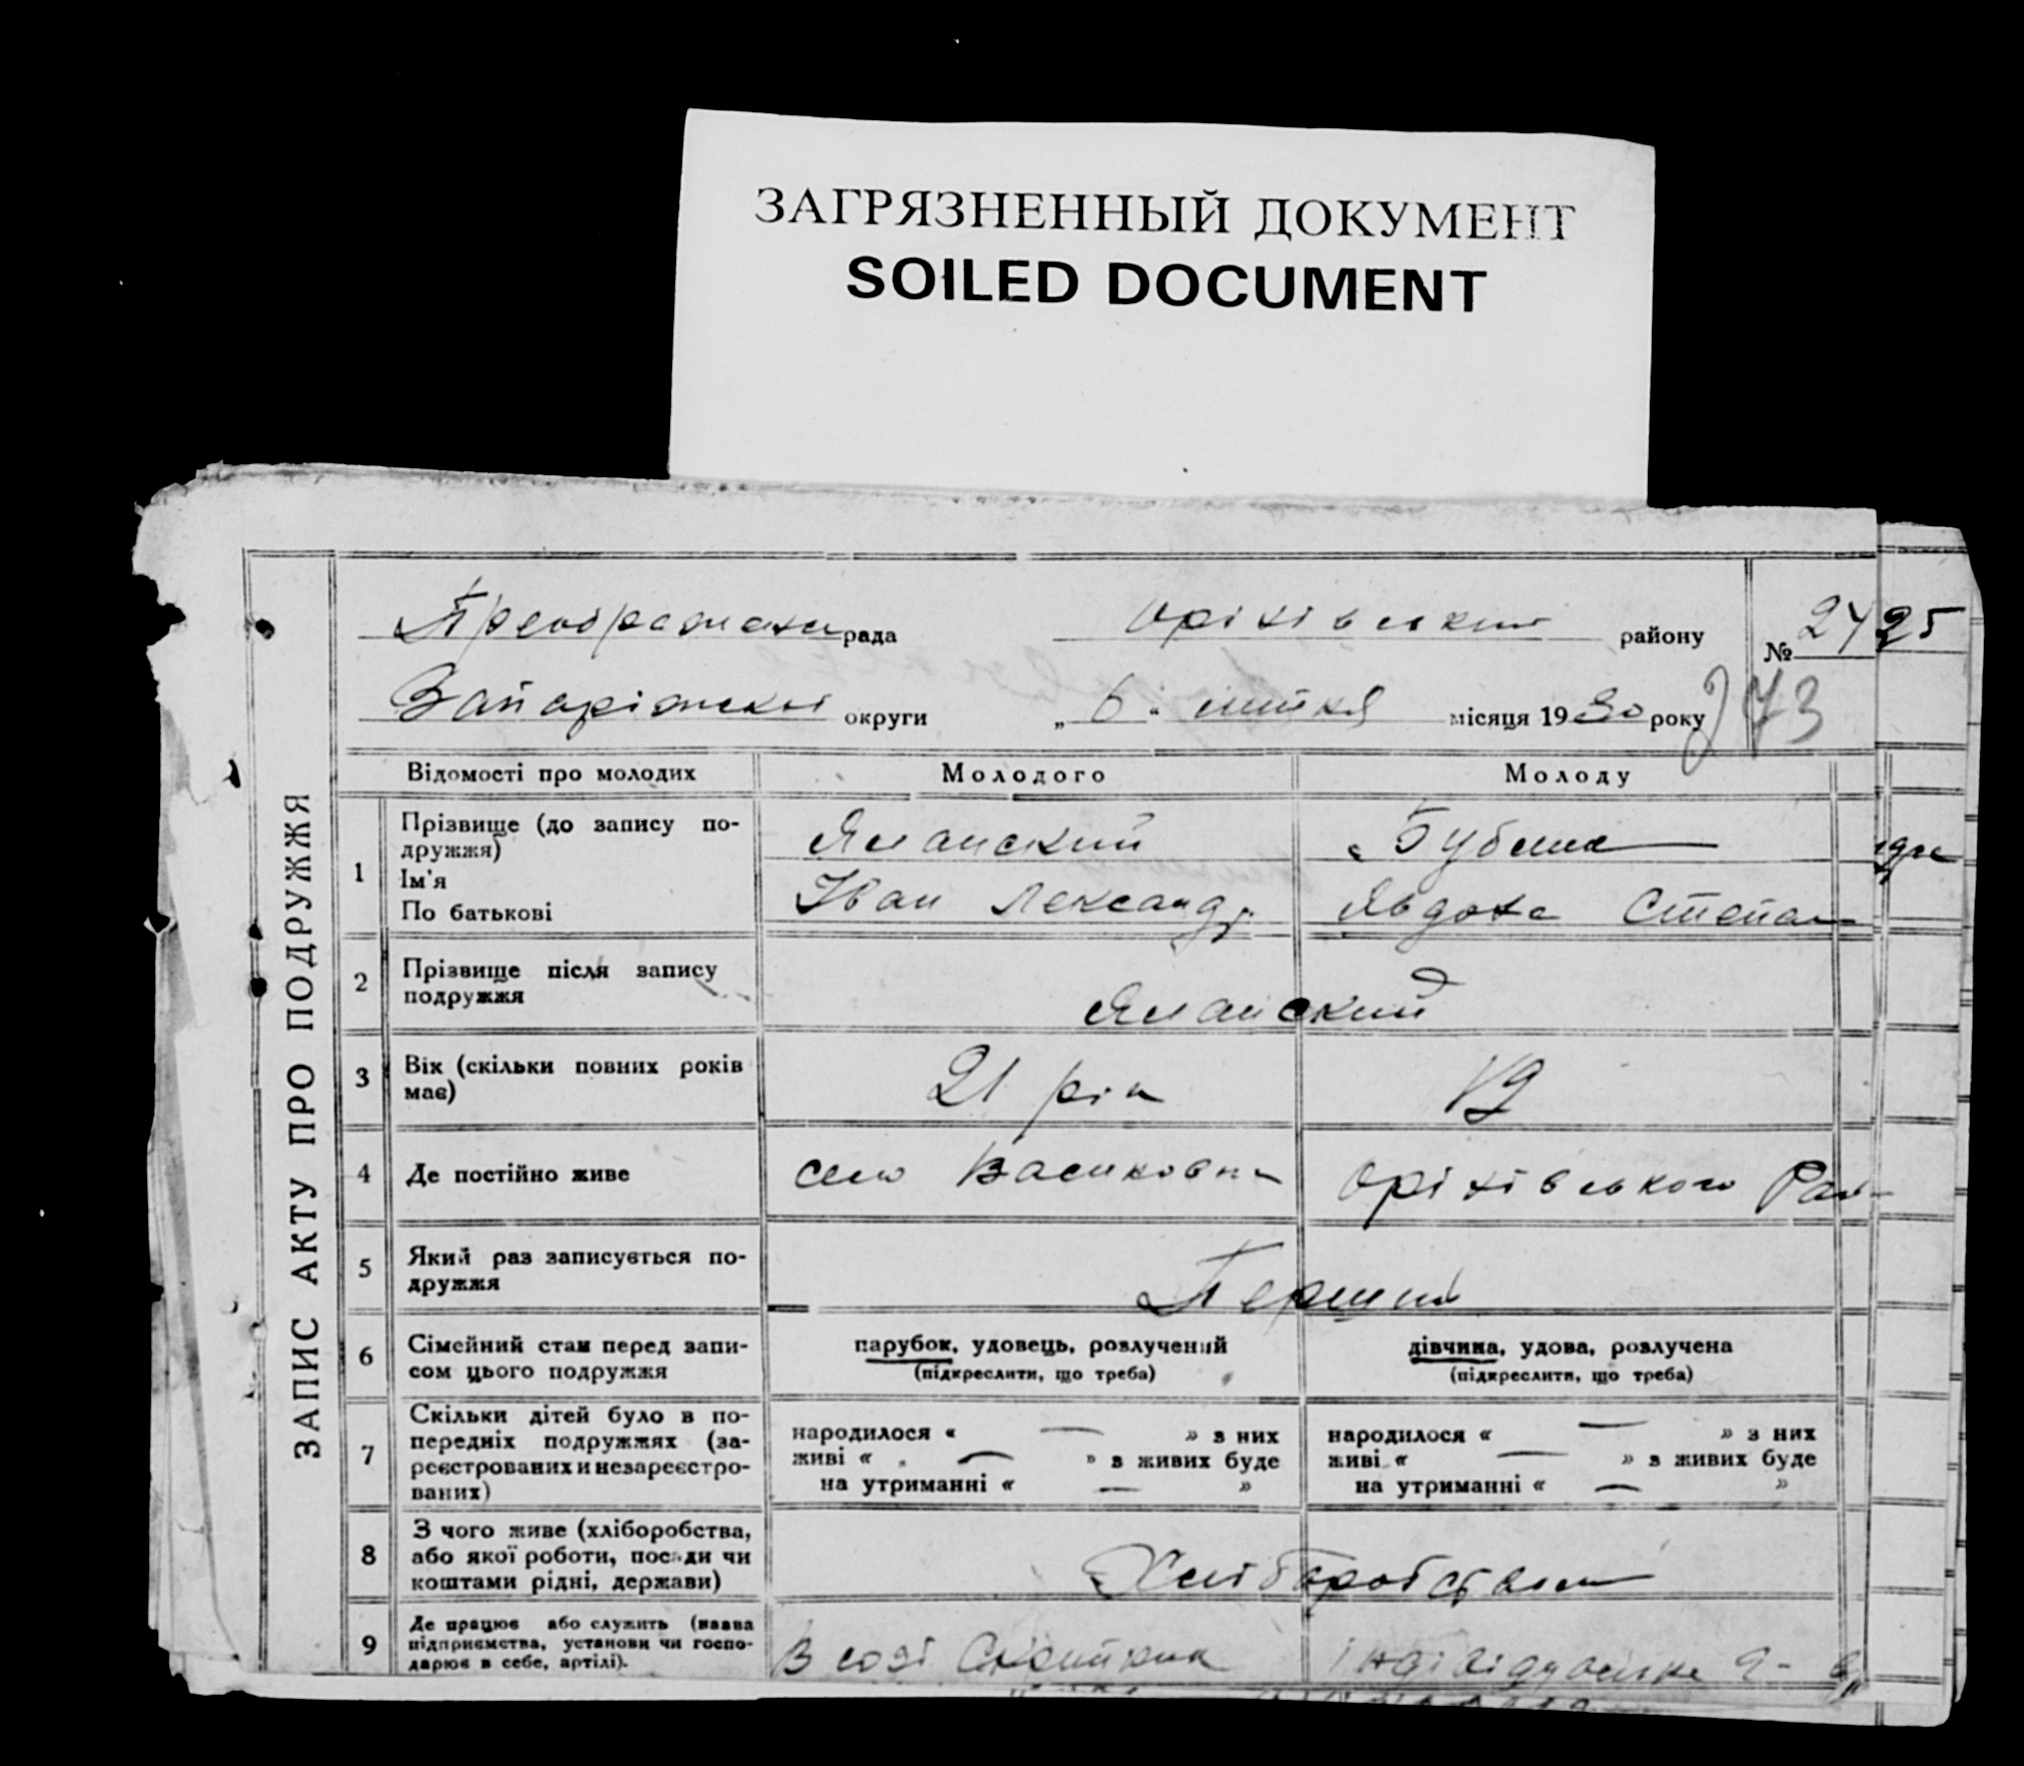 ЗАГРЯЗНЕННЫЙ ДОКУМЕНТ
SOILED DOCUMENT
ЗАПИС АКТУ ПРО ПОДРУЖЖЯ
рада Оріхівського району № 24 25
Запоріжської округи „ 6 “ липня місяця 1930 року 273
Відомості про молодих Молодого Молоду
1 Прізвище (до запису по-
дружжя)
Ім'я
По батькові
Яланский
Іван Лександр.
Явдоха Степан
2 Прізвище після запису
подружжя
Яланский
3 Вік (скільки повних років
має)
21 рік 19
4 Де постійно живе село Оріхівського Рай
5 Який раз записується по-
дружжя
Перший
6 Сімейний стан перед запи-
сом цього подружжя
парубок, удовець, розлучений
(підкреслити, що треба)
дівчина, удова, розлучена
(підкреслити, що треба)
7 Скільки дітей було в по-
передніх подружжях (за-
реєстрованих и незареєстро-
ваних)
народилося « — » з них
живі « — » з живих буде
на утриманні « — »
народилося « — » з них
живі « — » з живих буде
на утриманні « — »
8 З чого живе (хліборобства,
або якої роботи, посади чи
коштами рідні, держави)
9 Де працює або служить (назва
підприємства, установи чи госпо-
дарює в себе, артілі).
В созі